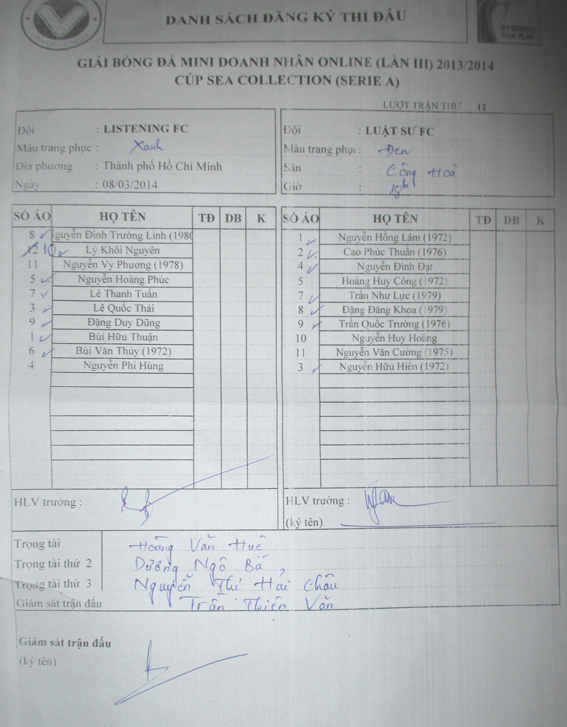 DANH SÁCH ĐĂNG KÝ THI ĐẤU
GIẢI BÓNG ĐÁ MINI DOANH NHÂN ONLINE (LẦN III) 2013/2014
CÚP SEA COLLECTION (SERIE A)
LƯỢT TRẬN THỨ : 12
Đội : LISTENING FC
Màu trang phục : Xanh
Địa phương : Thành phố Hồ Chí Minh
Ngày : 08/03/2014
Đội : LUẬT SƯ FC
Màu trang phục : Đen
Sân : Cộng Hoà
Giờ :
SỐ ÁO HỌ TÊN TĐ DB K
8 Nguyễn Đình Trường Linh (198
12 10 Lý Khôi Nguyên
11 Nguyễn Vy Phương (1978)
5 Nguyễn Hoàng Phúc
7 Lê Thanh Tuấn
3 Lê Quốc Thái
9 Đặng Duy Dũng
1 Bùi Hữu Thuận
6 Bùi Văn Thủy (1972)
4 Nguyễn Phi Hùng
SỐ ÁO HỌ TÊN TĐ DB K
1 Nguyễn Hồng Lâm (1972)
2 Cao Phúc Thuần (1976)
4 Nguyễn Đình Đạt
5 Hoàng Huy Công (1972)
7 Trần Như Lực (1979)
8 Đặng Đăng Khoa (1979)
9 Trần Quốc Trường (1976)
10 Nguyễn Huy Hoàng
11 Nguyễn Văn Cường (1975)
3 Nguyễn Hữu Hiền (1972)
HLV trưởng :
HLV trưởng :
(ký tên)
Trọng tài Hoàng Văn Huê
Trọng tài thứ 2 Dương Ngô Bá
Trọng tài thứ 3 Nguyễn Thị Hải Châu
Giám sát trận đấu Trần Thiên Văn
Giám sát trận đấu
(ký tên)